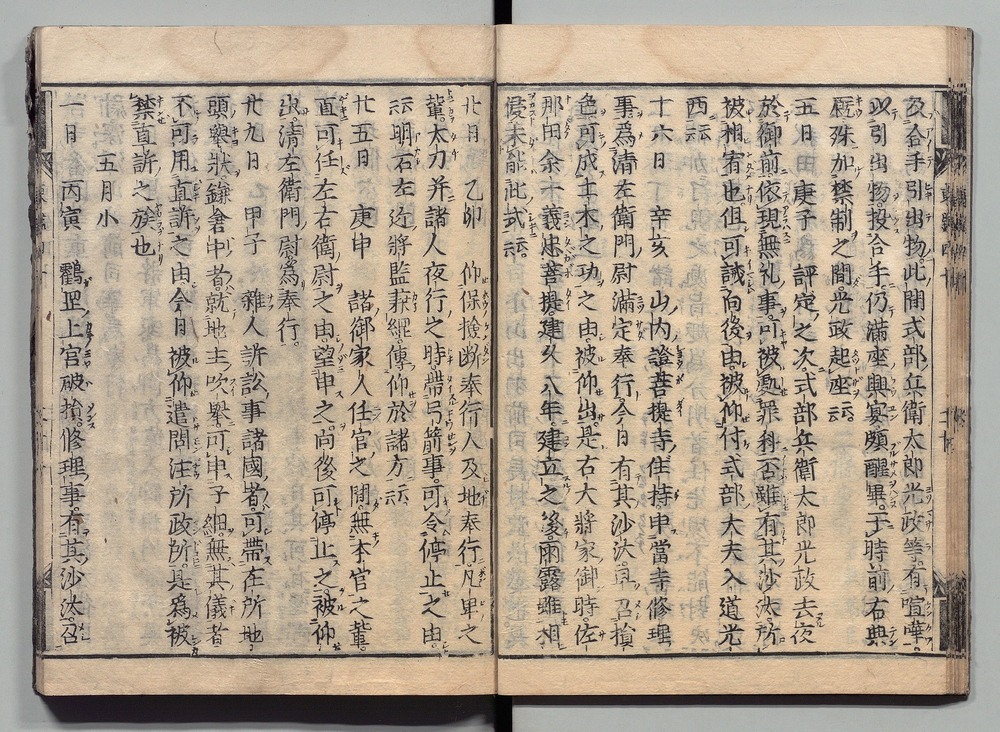 及合手引出物此間式部兵衛太郎光政等有喧嘩
以引出物投合手仍滿座與宴頗醒畢于時前右典
厩殊加禁制之間光政起座云云
五日 庚子 評定之次式部兵衛太郎光政去夜
於御前依現無礼事可被処罪科否雖有其沙汰所
被相宥也但可誡向後由被仰付式部大夫入道光
西云云
十六日 辛亥 山内證菩提寺住持申當寺修理
事為清左衛門尉滿定奉行今日有其沙汰直召損
色可成土木之功之由被仰出是右大將家御時佐
那田余一義忠菩提建久八年建立之後雨露雖相
侵未能此式云云
廿日 乙卯 仰保撿断奉行人及地奉行凡卑之
輩太刀并諸人夜行之時帯弓箭事可令停止之由
云云明石左近將監兼綱傳仰於諸方云云
廿五日 庚申 諸御家人任官之間無本官之輩
直可任左右衛尉之由望申之向後可停止之被仰
出清左衛門尉為奉行
廿九日 甲子 雜人訴訟事諸國者可帯在所地
頭擧状鎌倉中者就地主吹擧可申子細無其儀者
不可用直訴之由今日被仰遣問注所政所是為被
禁直訴之族也
五月小
一日 丙寅 鶴岡上宮破損修理事有其沙汰召